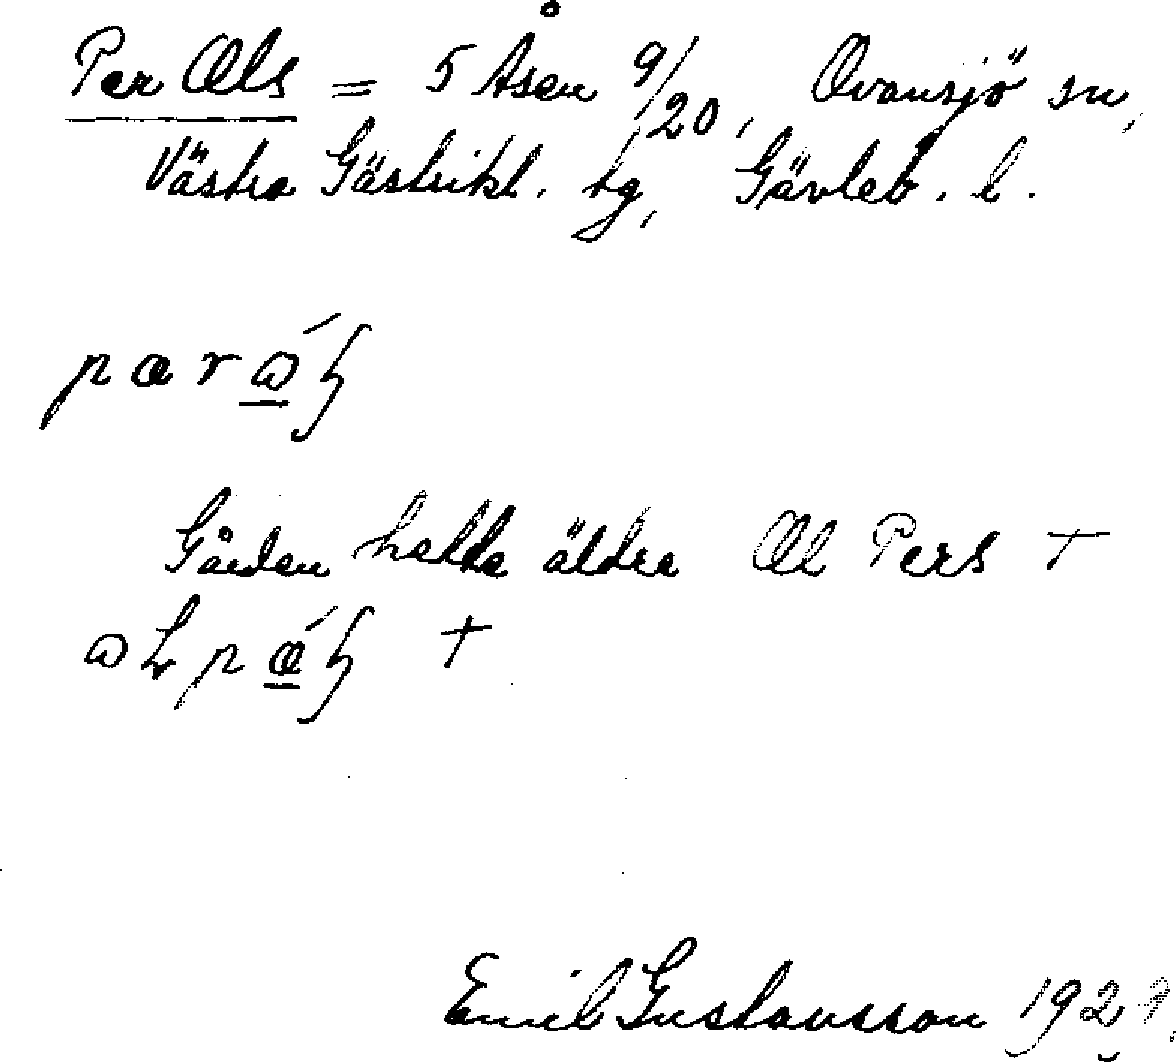 Per Ols = 5 Åsen 9/20, Ovansjö sn,
Västra Gästrikl. tg, Gävleb. l.
Gården hette äldre Ol Pers +
+
Emil Gustavsson 192